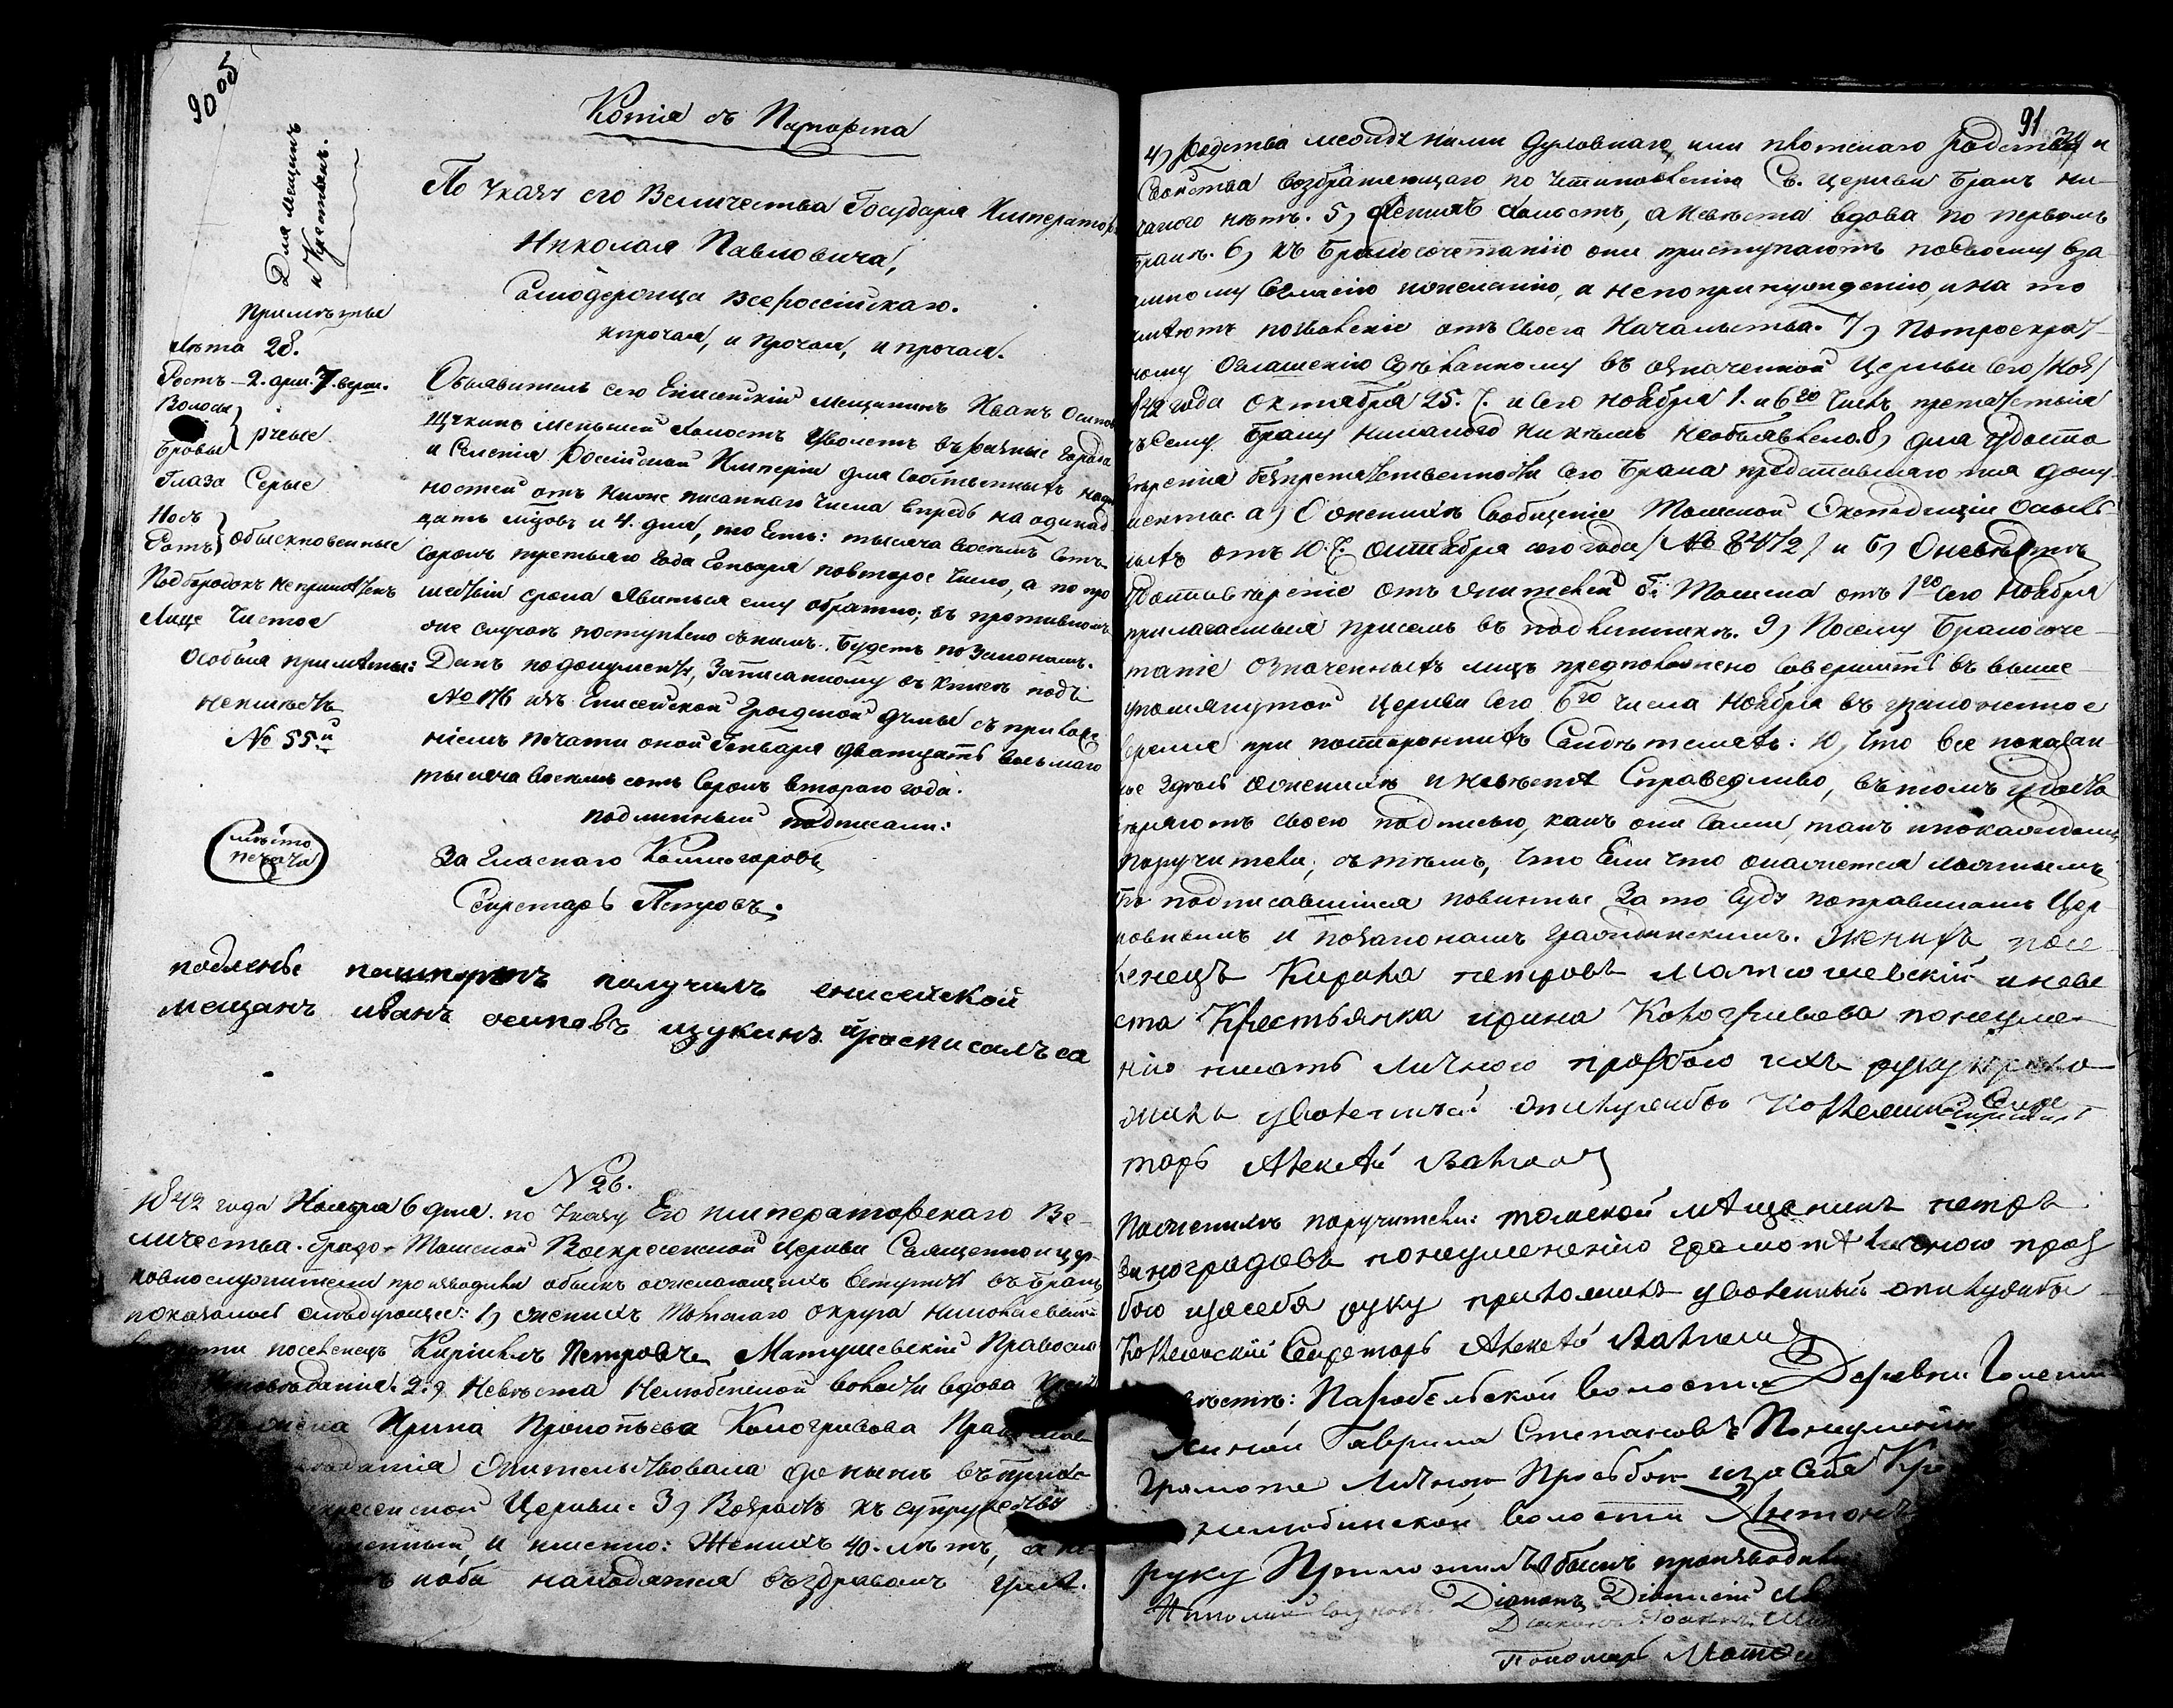 90 об
Для мещанъ
и крестьян.
Примѣты
Лѣта 28.
Ростъ – 2. арш. 7. верш.
Волосы
Бровы } русые.
Глаза Серые
Носъ
Ротъ } обыкновенные
Подбородокъ непримѣтенъ
Лице Чистое
Особыя примѣты:
неимѣетъ
№ 55й
мѣсто
печати
Копія съ Паспорта
По Указу его Величества Государя Императора
Николая Павловича,
Самодержца всероссійскаго.
ипрочая, и прочая, и прочая.
Объявитель сего Енисейскій мещанинъ Иванъ Осиповъ
Щукинъ меньшей холостъ Уволенъ въ разные города
и Селенія Россійской Имперіи для собственныхъ надоб
ностей отъ ниже писаннаго числа впредь на одинад
цать мѣсяцовъ и 4. дня, то есть: тысяча восемь сотъ
сорокъ третьяго года Генваря по второе число, а по про
шествіи срока явиться ему обратно; въ противномъ
же случаѣ поступлено съ нимъ будетъ по законамъ.
Данъ по документу, записанному въ книгѣ подъ
№ 176 изъ Енисейской Градской думы съ приложе
ніемъ печати оной Генваря дватцать восьмаго
тысяча восемь сотъ сорокъ втораго года.
подлинный подписали:
За Гласнаго Колмогоровъ
Секретарь Петровъ.
подлены пашпортъ получилъ енисейской
мещанъ иванъ осиповъ щукинъ и росписалъса
№ 26.
1842 года Ноября 6 дня. по Указу Его императорскаго Ве-
личества. Градо-Томской Воскресенской Церкви Священно и цер-
ковнослужители производили обыскъ о желающихъ вступить въ бракъ
показалось слѣдующее: 1) женихъ Томскаго округа николаевской
поселенецъ Кирилъ Петровъ Матушевскій Православ
2.) Невѣста Нелюбинской волости вдова
Ирина Прокопьева Кологривова
Жительствовала до нынѣ въ приходѣ
Церкви. 3) Возрастъ къ супружеству
и именно: Женихъ 40. лѣтъ,
находятся въ здравомъ умѣ.
91
4) родства между ними духовнаго, или плотскаго родства и
свойства возбраняющаго по Установленію Св. церкви бракъ ни-
какого нѣтъ. 5) Женихъ холостъ, а невѣста вдова по первомъ
бракѣ. 6) къ бракосочетанію они приступаютъ по своему вза
имному согласію и желанію, а не по принужденію, и на то
имѣютъ позволеніе отъ своего Начальства. 7) По троекрат-
ному оглашенію сдѣланному въ означенной Церкви сего
1842 года Октября 25. и сего ноября 1. и 6го чиселъ препятствія
къ сему браку никакого никѣмъ необъявлено. 8) для удосто
вѣренія безпрепятственности сего брака представляются доку-
менты: а) О женихѣ сообщеніе Томской Экспедиціи Ссыль-
ныхъ отъ 10. Октября сего года и б) О невѣстѣ
удостовѣреніе отъ жителей г. Томска отъ 1го сего Ноября
прилагаемыя присемъ въ подлинникѣ. 9) По сему бракосоче-
таніе означенныхъ лицъ предположено совершить въ выше-
упомянутой церкви сего 6го числа Ноября въ узаконенное
время при постороннихъ свидѣтеляхъ. 10) что все показан-
ное здѣсь о женихѣ и невѣстѣ справедливо, въ томъ удосто
вѣряютъ своею подписью, какъ они сами, такъ и по каждомъ
поручители, съ тѣмъ, что если что окажется ложнымъ,
то подписавшіеся повинны за то суду по правиламъ Цер-
ковнымъ и по законамъ гражданскимъ. Женихъ посе
ленецъ Кирила петровъ Матюшевскій и неве
ста Крестьянка ирина Кологривова понеуме-
нію писать личною прозбою ихъ руку прило
жилъ уволенный Коллежскій Секре
тарь Алексѣй
По женихѣ поручители: томской мѣщенинъ петръ
виноградовъ понеуменению грамотѣ личною проз
бою изасебя руку приложилъ уволенный
Коллежскій Секретарь Алексѣй
По невѣстѣ: Парабельской волости Деревни
Гаврила Степановъ Понеумению
грамоте личною просьбою изасебя
нелюбинской волости Антонъ
руку Приложилъ Обыскъ производили
Діаконъ Діонисій
Діаконъ
Пономарь